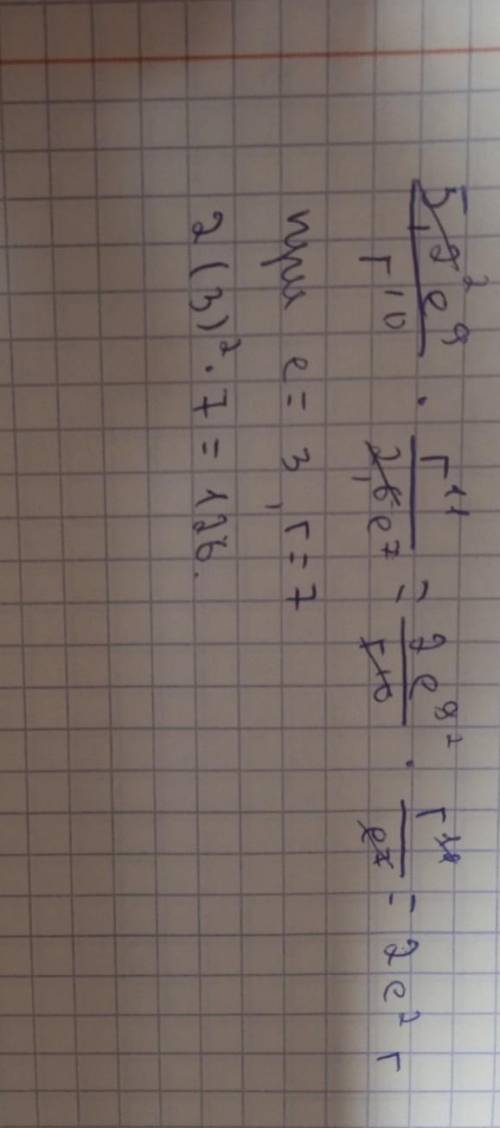 5,2² e⁹ / r¹⁰ · r¹¹ / 2,6 e⁷ = 2 e⁹ ² / r¹⁰ · r¹¹ / e⁷ = 2 e² r
при e = 3, r = 7
2 (3)² · 7 = 126.